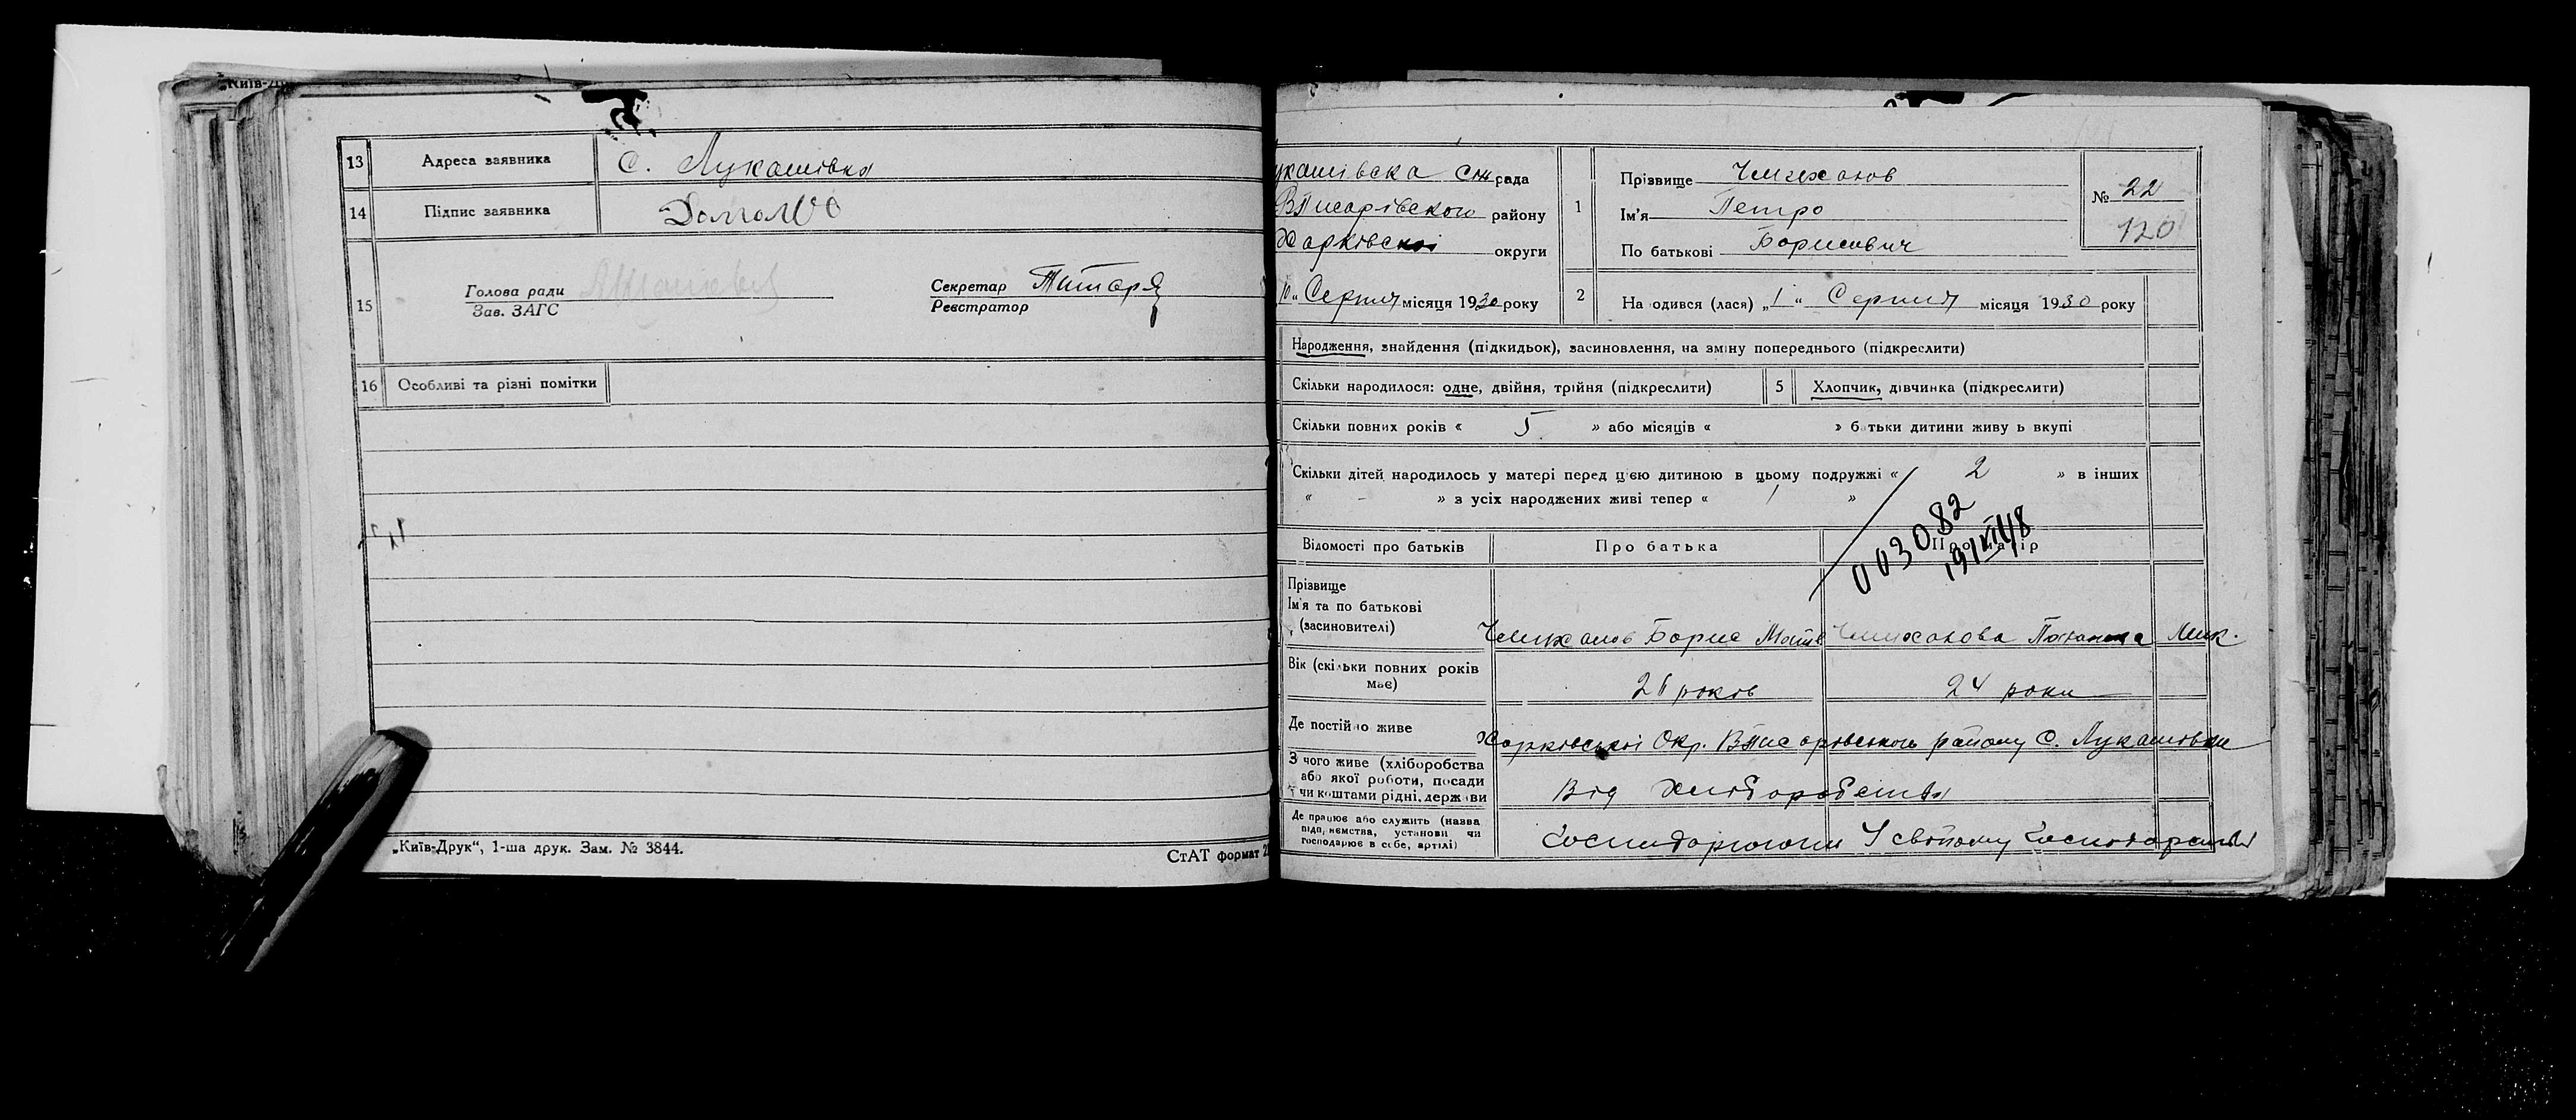 „Київ-Др
13 Адреса заявника С. Лукашівка
14 Підпис заявника
15 Голова ради
Зав. ЗАГС
Секретар Титар
Реєстратор
16 Особливі та різні помітки
„Київ-Друк“, 1-ша друк. Зам. № 3844.
СтАТ формат 2
укашівська рада
ВПисарівского району
Харківскої округи
10 „ Серпня місяця 1930 року
1 Прізвище
Ім'я Петро
По батькові Борисович
№ 22
120
2 На одився (лася) „1“ Серпня місяця 1930 року
Народження, знайдення (підкидьок), засиновлення, на зміну попереднього (підкреслити)
Скільки народилося: одне, двійня, трійня (підкреслити)
5 Хлопчик, дівчинка (підкреслити)
Скільки повних років « 5 » або місяців « » батьки дитини живу ь вкупі
Скільки дітей народилось у матері перед цією дитиною в цьому подружжі « 2 » в інших
« - » з усіх народжених живі тепер « 1 »
003082
19/XII 48
Відомості про батьків Про батька Про матір
Прізвище
Ім'я та по батькові
(засиновителі)
Борис Матв
Мик.
Вік (скільки повних років
має)
26 років 24 роки
Де постійно живе
Харківської Окр. ВПисарівського району С. Лукашівки
З чого живе (хліборобства
або якої роботи, посади
чи коштами рідні, держави
Від Хліборобства
Де працює або служить (назва
підприємства, установи чи
господарює в себе, артілі)
Господарюючи У свойому Господарстві